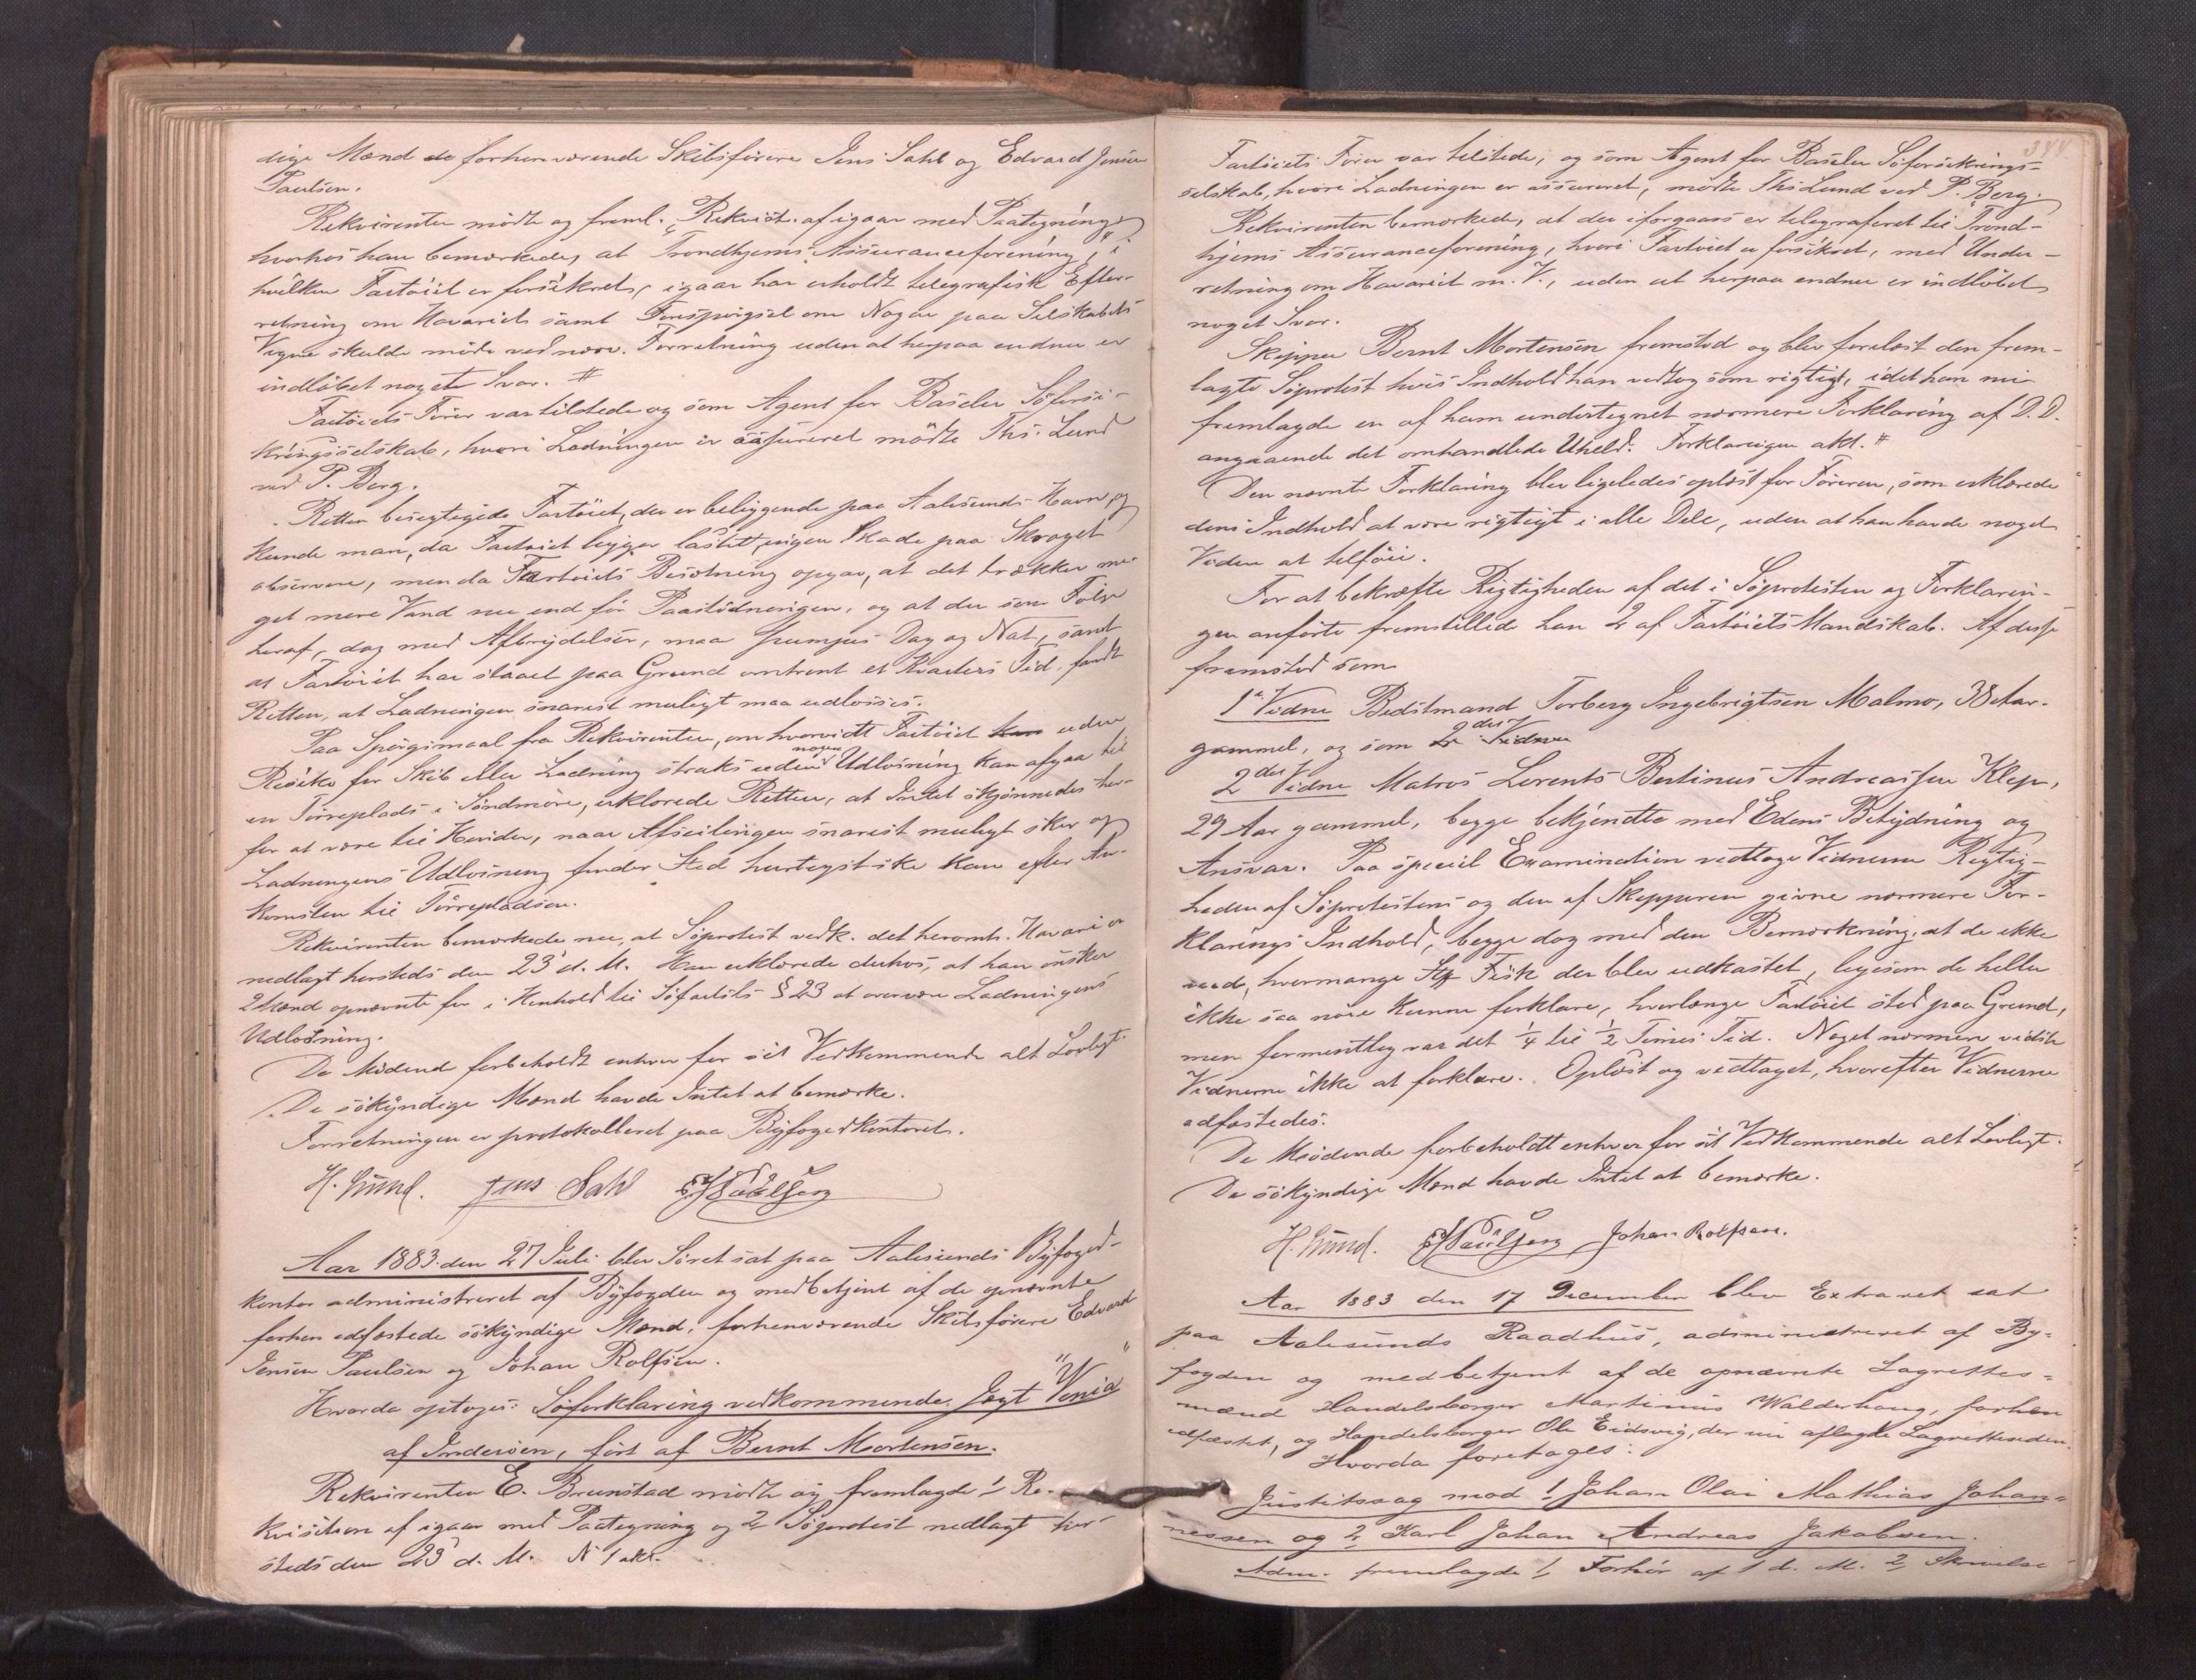 dige Mænd de forhenværende Skibsførere Jens Dahl og Edvard Jensen
Paulsen.
Rekvirenten mødte og freml. Rekvist. af igaar med Paategning,
hvorhos han bemærkede, at Trondhjems Assuranceforening, i
hvilken Fartøiet er forsikret, igaar har erholdt telegrafisk Efter-
retning om Havariet samt Forespørgsel om Nogen paa Selskabets
Vegne skulde møde ved nærv. Forretning uden at herpaa endnu er
indløbet noget Svar. #
Fartøiets Fører var tilstede og som Agent for Baseler Søforsi-
kringsselskab, hvori Ladningen er assureret mødte Ths. Lund
ved P. Berg.
Retten besigtigede Fartøiet, der er beliggende paa Aalesunds Havn, og
kunde man, da Fartøiet ligger lastet, ingen Skade paa Skroget
observere, men da Fartøiets Besætning opgav, at det trækker me-
get mere Vand nu end før Paastødningen, og at der som Følge
heraf, dog med Afbrydelser, maa pumpes Dag og Nat, samt
at Fartøiet har staaet paa Grund omtrent et Kvarters Tid, fandt
Retten, at Ladningen snarest muligt maa udlosses.
Paa Spørgsmaal fra Rekvirenten, om hvorvidt Fartøiet kan uden
Risiko for Skib eller Ladning straks uden nogen Udlosning kan afgaa til
en Tørreplads i Søndmøre, erklærede Retten, at Intet skjønnedes her-
for at være til Hinder, naar Afseilingen snarest muligt sker og
Ladningens Udlosning finder Sted hurtigst ske kan efter An-
komsten til Tørrepladsen.
Rekvirenten bemærkede nu, at Søprotest vedk. det heromh. Havari er
nedlagt hersteds den 23' d. M. Han erklærede derhos, at han ønsker
2 Mænd opnævnte for i Henhold til Søfartsl's § 23 at overvære Ladningens
Udlosning.
De Mødende forbeholdt enhver for sit Vedkommende alt Lovligt.
De søkyndige Mænd havde Intet at bemærke.
Forretningen er protokolleret paa Byfogedkontoret.
H. Lund. Jens Dahl EJPaulsen
Aar 1883 den 27 Juli blev Søret sat paa Aalesunds Byfoged-
kontor administreret af Byfogden og medbetjent af de opnævnte
forhen edfæstede søkyndige Mænd, forhenværende Skibsførere Edvard
Jensen Paulsen og Johan Rolfsen.
Hvorda optoges: Søforklaring vedkommende Jagt "Venia"
af Inderøen, ført af Bernt Mortensen.
Rekvirenten E. Brunstad mødte og fremlagde 1, Re-
kvisition af igaar med Paategning og 2, Søprotest nedlagt her-
steds den 23' d. M. N 1 akt.
344.
Fartøiets Fører var tilstede, og som Agent for Baseler Søforsikrings-
selskab, hvori Ladningen er assureret, mødte Ths Lund ved P. Berg.
Rekvirenten bemærkede, at der iforgaars er telegraferet til Trond-
hjems Assuranceforening, hvori Fartøiet er forsikret, med Under-
retning om Havariet m. V., uden at herpaa endnu er indløbet
noget Svar.
Skipper Bernt Mortensen fremstod og blev forelæst den frem-
lagte Søprotest hvis Indhold han vedtog som rigtigt, idet han nu
fremlagde en af ham undertegnet nærmere Forklaring af D. D.
angaaende det omhandlede Uheld. Forklaringen akt. #
Den nævnte Forklaring blev ligeledes oplæst for Føreren, som erklærede
dens Indhold at være rigtigt i alle Dele, uden at han havde noget
Videre at tilføie.
For at bekræfte Rigtigheden af det i Søprotesten og Forklarin-
gen anførte fremstillede han 2 af Fartøiets Mandskab. Af disse
fremstod som
1ste Vidne Bedstmand Torberg Ingebrigtsen Malmo, 38 Aar
gammel, og som 2det Vidne
2det Vidne Matros Lorents Bertinus Andreassen Klep,
29 Aar gammel, begge bekjendte med Edens Betydning og
Ansvar. Paa speciel Examination vedtoge Vidnerne Rigtig-
heden af Søprotestens og den af Skipperen givne nærmere For-
klarings Indhold, begge dog med den Bemærkning, at de ikke
veed, hvormange Fisk der blev udkastet, ligesom de heller
ikke saa nøie kunne forklare, hvorlænge Fartøiet stod paa Grund,
men formentlig var det 1/4 til 1/2 Times Tid. Noget nærmere vidste
Vidnerne ikke at forklare. Oplæst og vedtaget, hvorefter Vidnerne
edfæstedes.
De Mødende forbeholdt enhver for sit Vedkommende alt Lovligt.
De søkyndige Mænd havde Intet at bemærke.
H. Lund. EJPaulsen Johan Rolfsen.
Aar 1883 den 17 December blev Extraret sat
paa Aalesunds Raadhus, administreret af By-
fogden og medbetjent af de opnævnte Lagrettes-
mænd Handelsborger Martinus Walderhaug, forhen
edfæstet, og Handelsborger Ole Eidsvig, der nu aflagde Lagretteseden.
Hvorda foretoges:
Justitssag mod 1, Johan Olai Mathias Johan-
nessen og 2, Karl Johan Andreas Jakobsen.
Adm. fremlagde 1, Forhør af 1 d. M. 2, Skrivelse